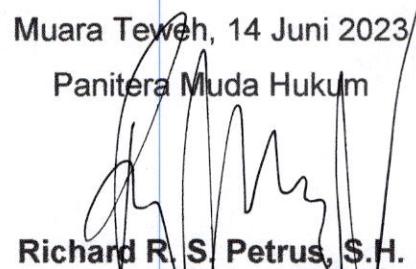 Muara Teweh, 14 Juni 2023
Panitera Muda Hukum
Richard R. S. Petrus, S.H.